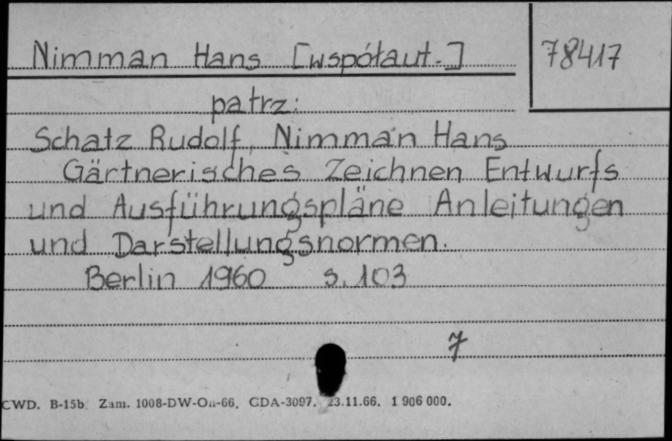 Nimman Hans [współaut.] 78417
patrz:
Schatz Rudolf, Nimman Hans
Gärtnerisches Zeichnen Entwurfs
und Ausführungspläne Anleitungen
und Darstellungsnormen.
Berlin 1960 s. 103
7
CWD. B-15b. Zam. 1008-DW-Oo-66. CDA-3097. 23.11.66. 1 906 000.